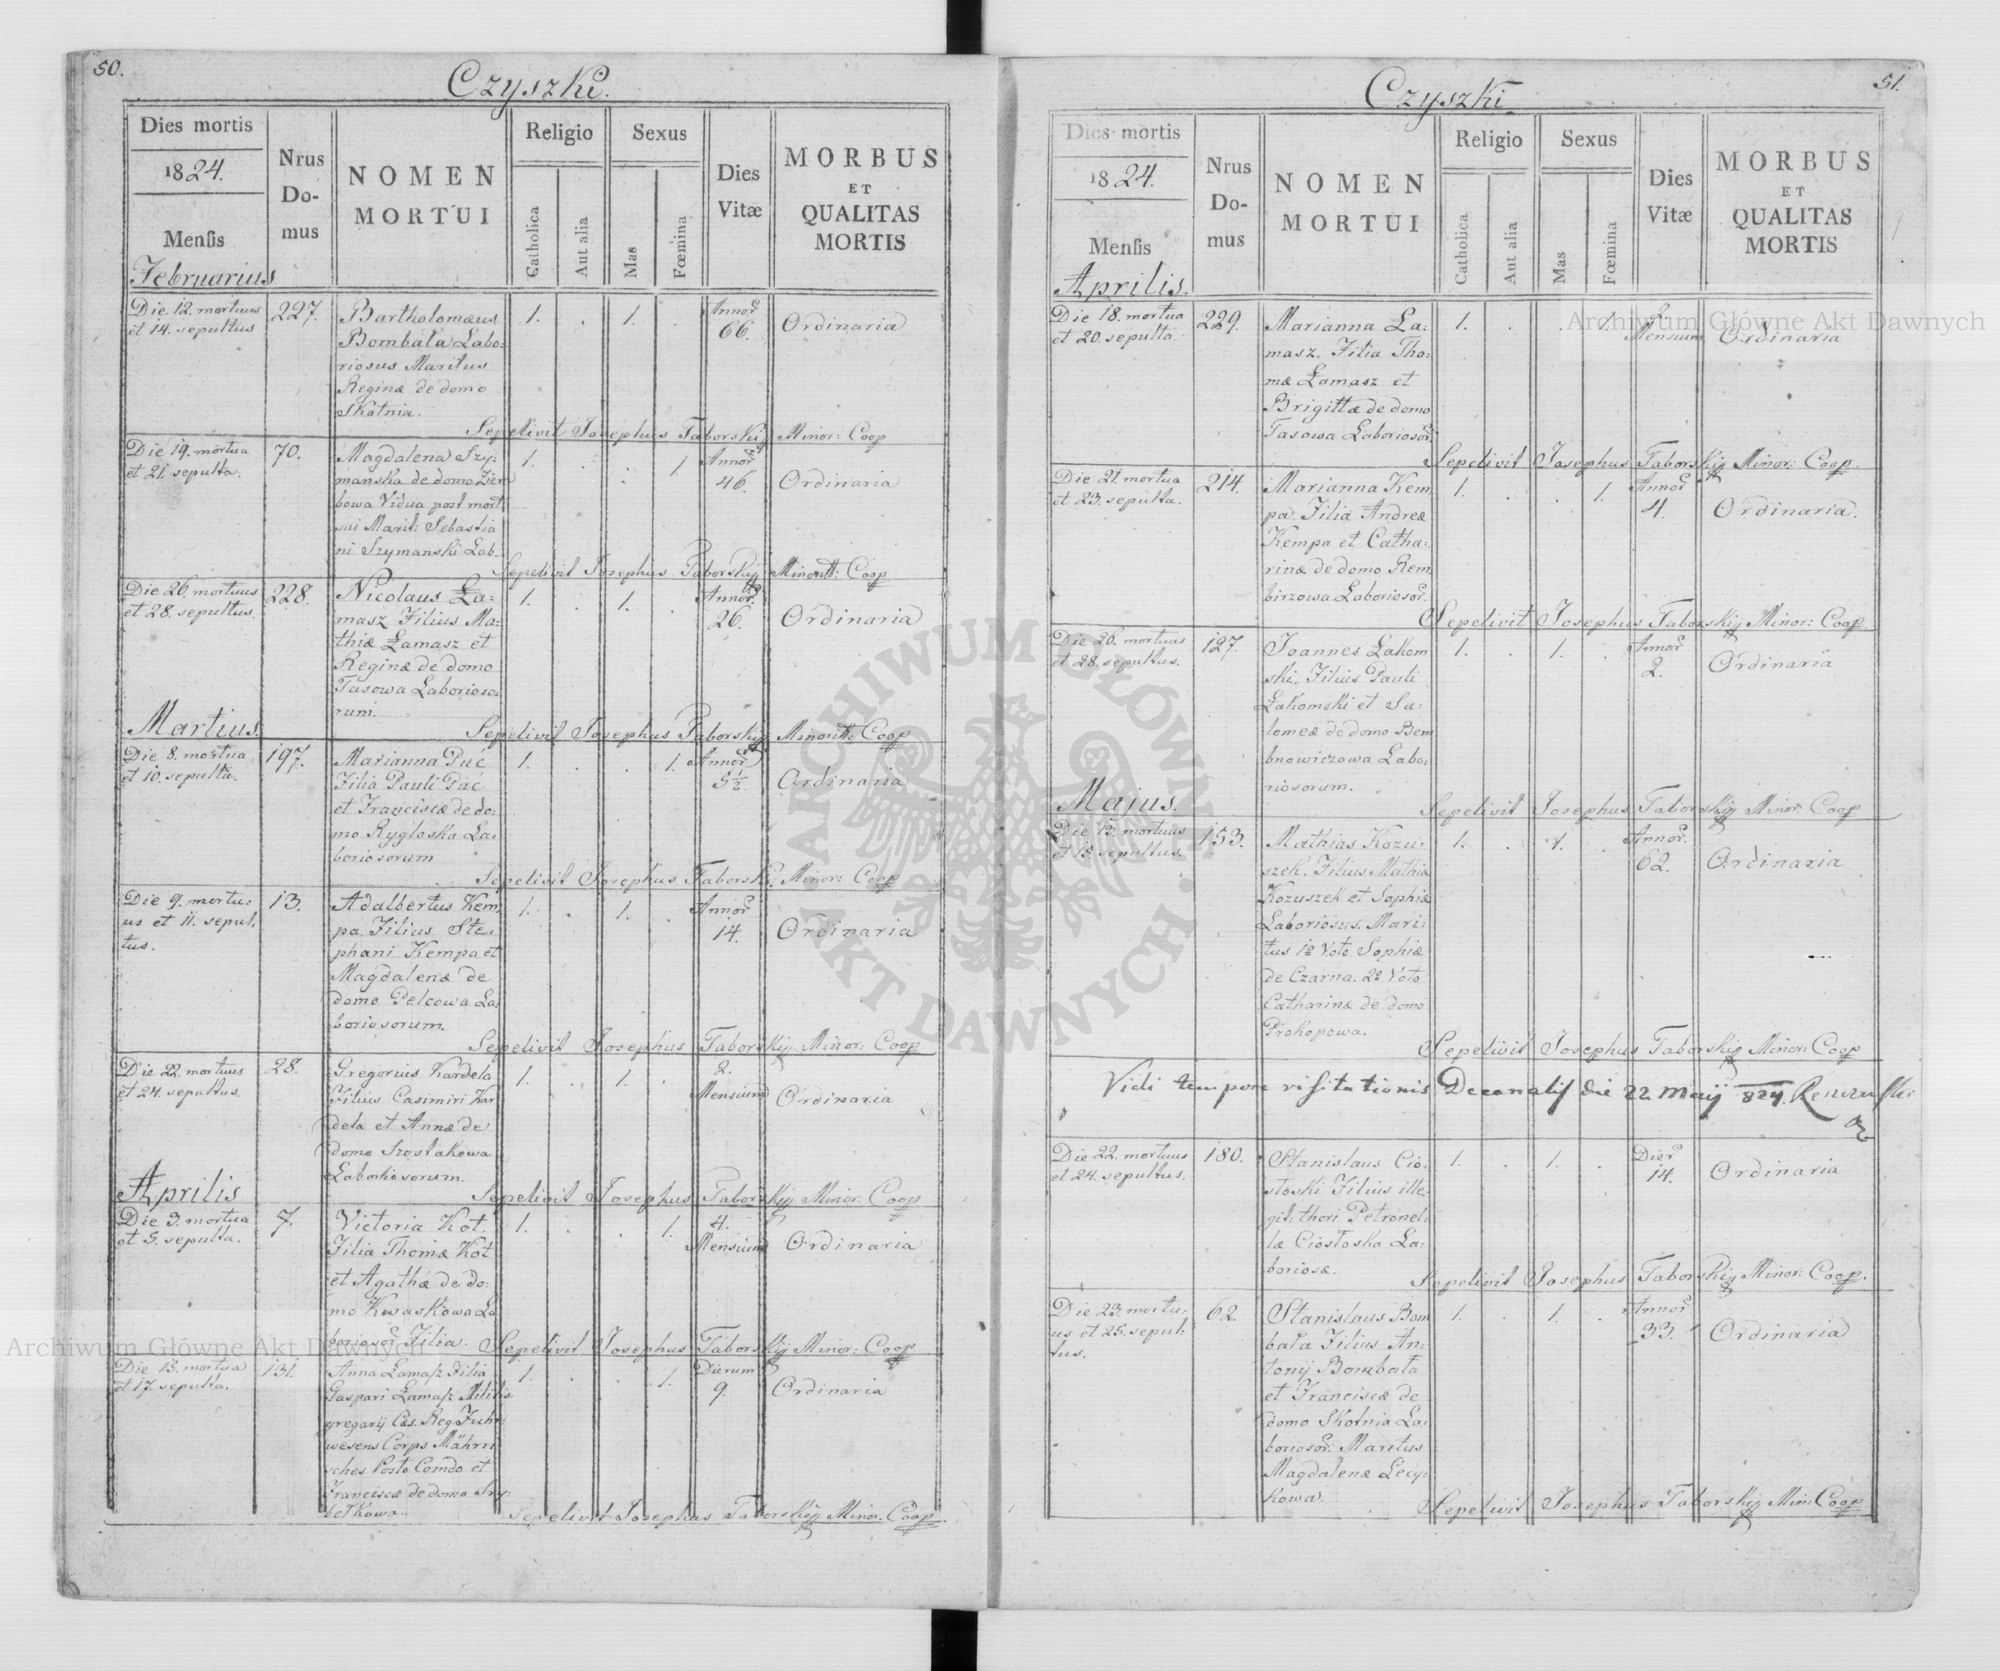 50.
Czyszki.
Dies mortis
1824.
Mensis
Nrus
Do-
mus
NOMEN
MORTUI
Religio
Catholica
Aut alia
Sexus
Mas
Fœmina
Dies
Vitæ
MORBUS
ET
QUALITAS
MORTIS
Februarius
Die 12. mortuus
et 14. sepultus
227.
Bartholomæus
Bombała Labo:
riosus Maritus
Reginæ de domo
Skotnia.
1. . 1. .
Annor
66.
Ordinaria
Sepelivit Josephus Taborskij Minor: Coop
Die 19. mortua
et 21. sepulta.
70.
Magdalena Szy:
manska de domo
bowa Vidua post mort
sui Marit: Sebastia
ni Szymanski Lab.
1. . . 1
Annor
46.
Ordinaria
Sepelivit Josephus Taborskij Minorit: Coop
Die 26. mortuus
et 28. sepultus.
228.
Nicolaus Ła:
masz Filius Ma:
thiæ Łamasz et
Reginæ de domo
Tasowa Laborioso:
rum.
1. . 1. .
Annor
26.
Ordinaria
Sepelivit Josephus Taborskij Minorit: Coop
Martius.
Die 8. mortua
et 10. sepulta.
197.
Marianna Puć
Filia Pauli Puć
et Franciscæ de do:
mo Rygloska La:
boriosorum
1. . . 1.
Annor
5½.
Ordinaria
Sepelivit Josephus Taborski: Minor: Coop
Die 9. mortu:
us et 11. sepul:
tus.
13.
Adalbertus Kem
pa Filius Ste:
phani Kempa et
Magdalenæ de
domo Pelcowa La:
boriosorum.
1. . 1. .
Annor
14.
Ordinaria
Sepelivit Josephus Taborskij Minor: Coop
Die 22. mortuus
et 24. sepultus.
28.
Gregorius Kardela
Filius Casimiri Kar
dela et Annæ de
domo Szostakowa
Laboriosorum.
1. . 1. .
2.
Mensium
Ordinaria
Sepelivit Josephus Taborskij Minor: Coop
Aprilis
Die 3. mortua
et 5. sepulta.
7.
Victoria Kot.
Filia Thomæ Kot
et Agathæ de do:
mo Kwaskowa La
borioso Filia.
1. . . 1.
4.
Mensium
Ordinaria
Sepelivit Josephus Taborskij Minor: Coop
Die 15. mortua
et 17. sepulta.
131.
Anna Łamasz Filia
Gaspari Łamasz Militis
gregarij Cæs. Reg. Fuhr
wesens Corps Mähri
sches Posto Comdo et
Franciscæ de domo
1. . . 1.
Dierum
9.
Ordinaria
Sepelivit Josephus Taborskij Minor: Coop.
51.
Czyszki
Dies mortis
1824.
Mensis
Nrus
Do-
mus
NOMEN
MORTUI
Religio
Catholica
Aut alia
Sexus
Mas
Fœmina
Dies
Vitæ
MORBUS
ET
QUALITAS
MORTIS
Aprilis.
Die 18. mortua
et 20. sepulta.
229.
Marianna Ła:
masz. Filia Tho:
mæ Łamasz et
Brigittæ de domo
Tasowa Laborioso
1. . . 1.
2
Mensium
Ordinaria
Sepelivit Josephus Taborskij Minor: Coop.
Die 21. mortua
et 23. sepulta.
214.
Marianna Kem
pa Filia Andreæ
Kempa et Catha:
rinæ de domo Rem
birzowa Laborioso
1. . . 1.
Annor
4.
Ordinaria.
Sepelivit Josephus Taborskij Minor: Coop.
Die 26. mortuus
et 28. sepultus.
127.
Joannes Łakom
ski. Filius Pauli
Łakomski et Sa:
lomeæ de domo Bem
bnowiczowa Labo:
riosorum.
1. . 1. .
Annor
2.
Ordinaria
Sepelivit Josephus Taborskij Minor: Coop
Majus.
Die 13. mortuus
et 15. sepultus.
153.
Mathias Kozu:
szek. Filius Mathia
Kozuszek et Sophiæ
Laboriosus. Mari:
tus 1º Voto Sophiæ
de Czarna. 2º Voto
Catharinæ de domo
Prokopowa.
1. . 1. .
Annor
62.
Ordinaria
Sepelivit Josephus Taborskij Minor: Coop
Vidi tempore visitationis Decanalis die 22 Maij 824.
Die 22. mortuus
et 24. sepultus.
180.
Stanislaus Cio:
stoski Filius ille:
git: thori Petronel:
læ Ciostoska La:
boriosæ.
1. . 1. .
Dier
14.
Ordinaria
Sepelivit Josephus Taborskij Minor: Coop.
Die 23. mortu:
us et 25. sepul:
tus.
62.
Stanislaus Bom
bała Filius An:
tonij Bombała
et Franciscæ de
domo Skotnia La:
borioso Maritus
Magdalenæ Lecy:
kowa.
1. . 1. .
Annor
33.
Ordinaria
Sepelivit Josephus Taborskij Min: Coop
Archiwum Główne Akt Dawnych
Archiwum Główne Akt Dawnych
ARCHIWUM GŁÓWNE AKT DAWNYCH